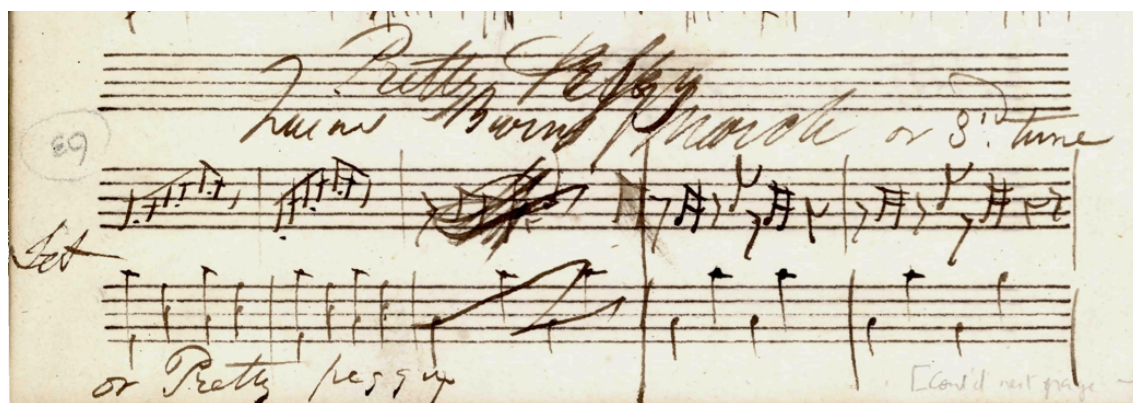 Pretty Peggy
March or 3rd tune
89
Set
or Pretty peggy
[Cont'd next page